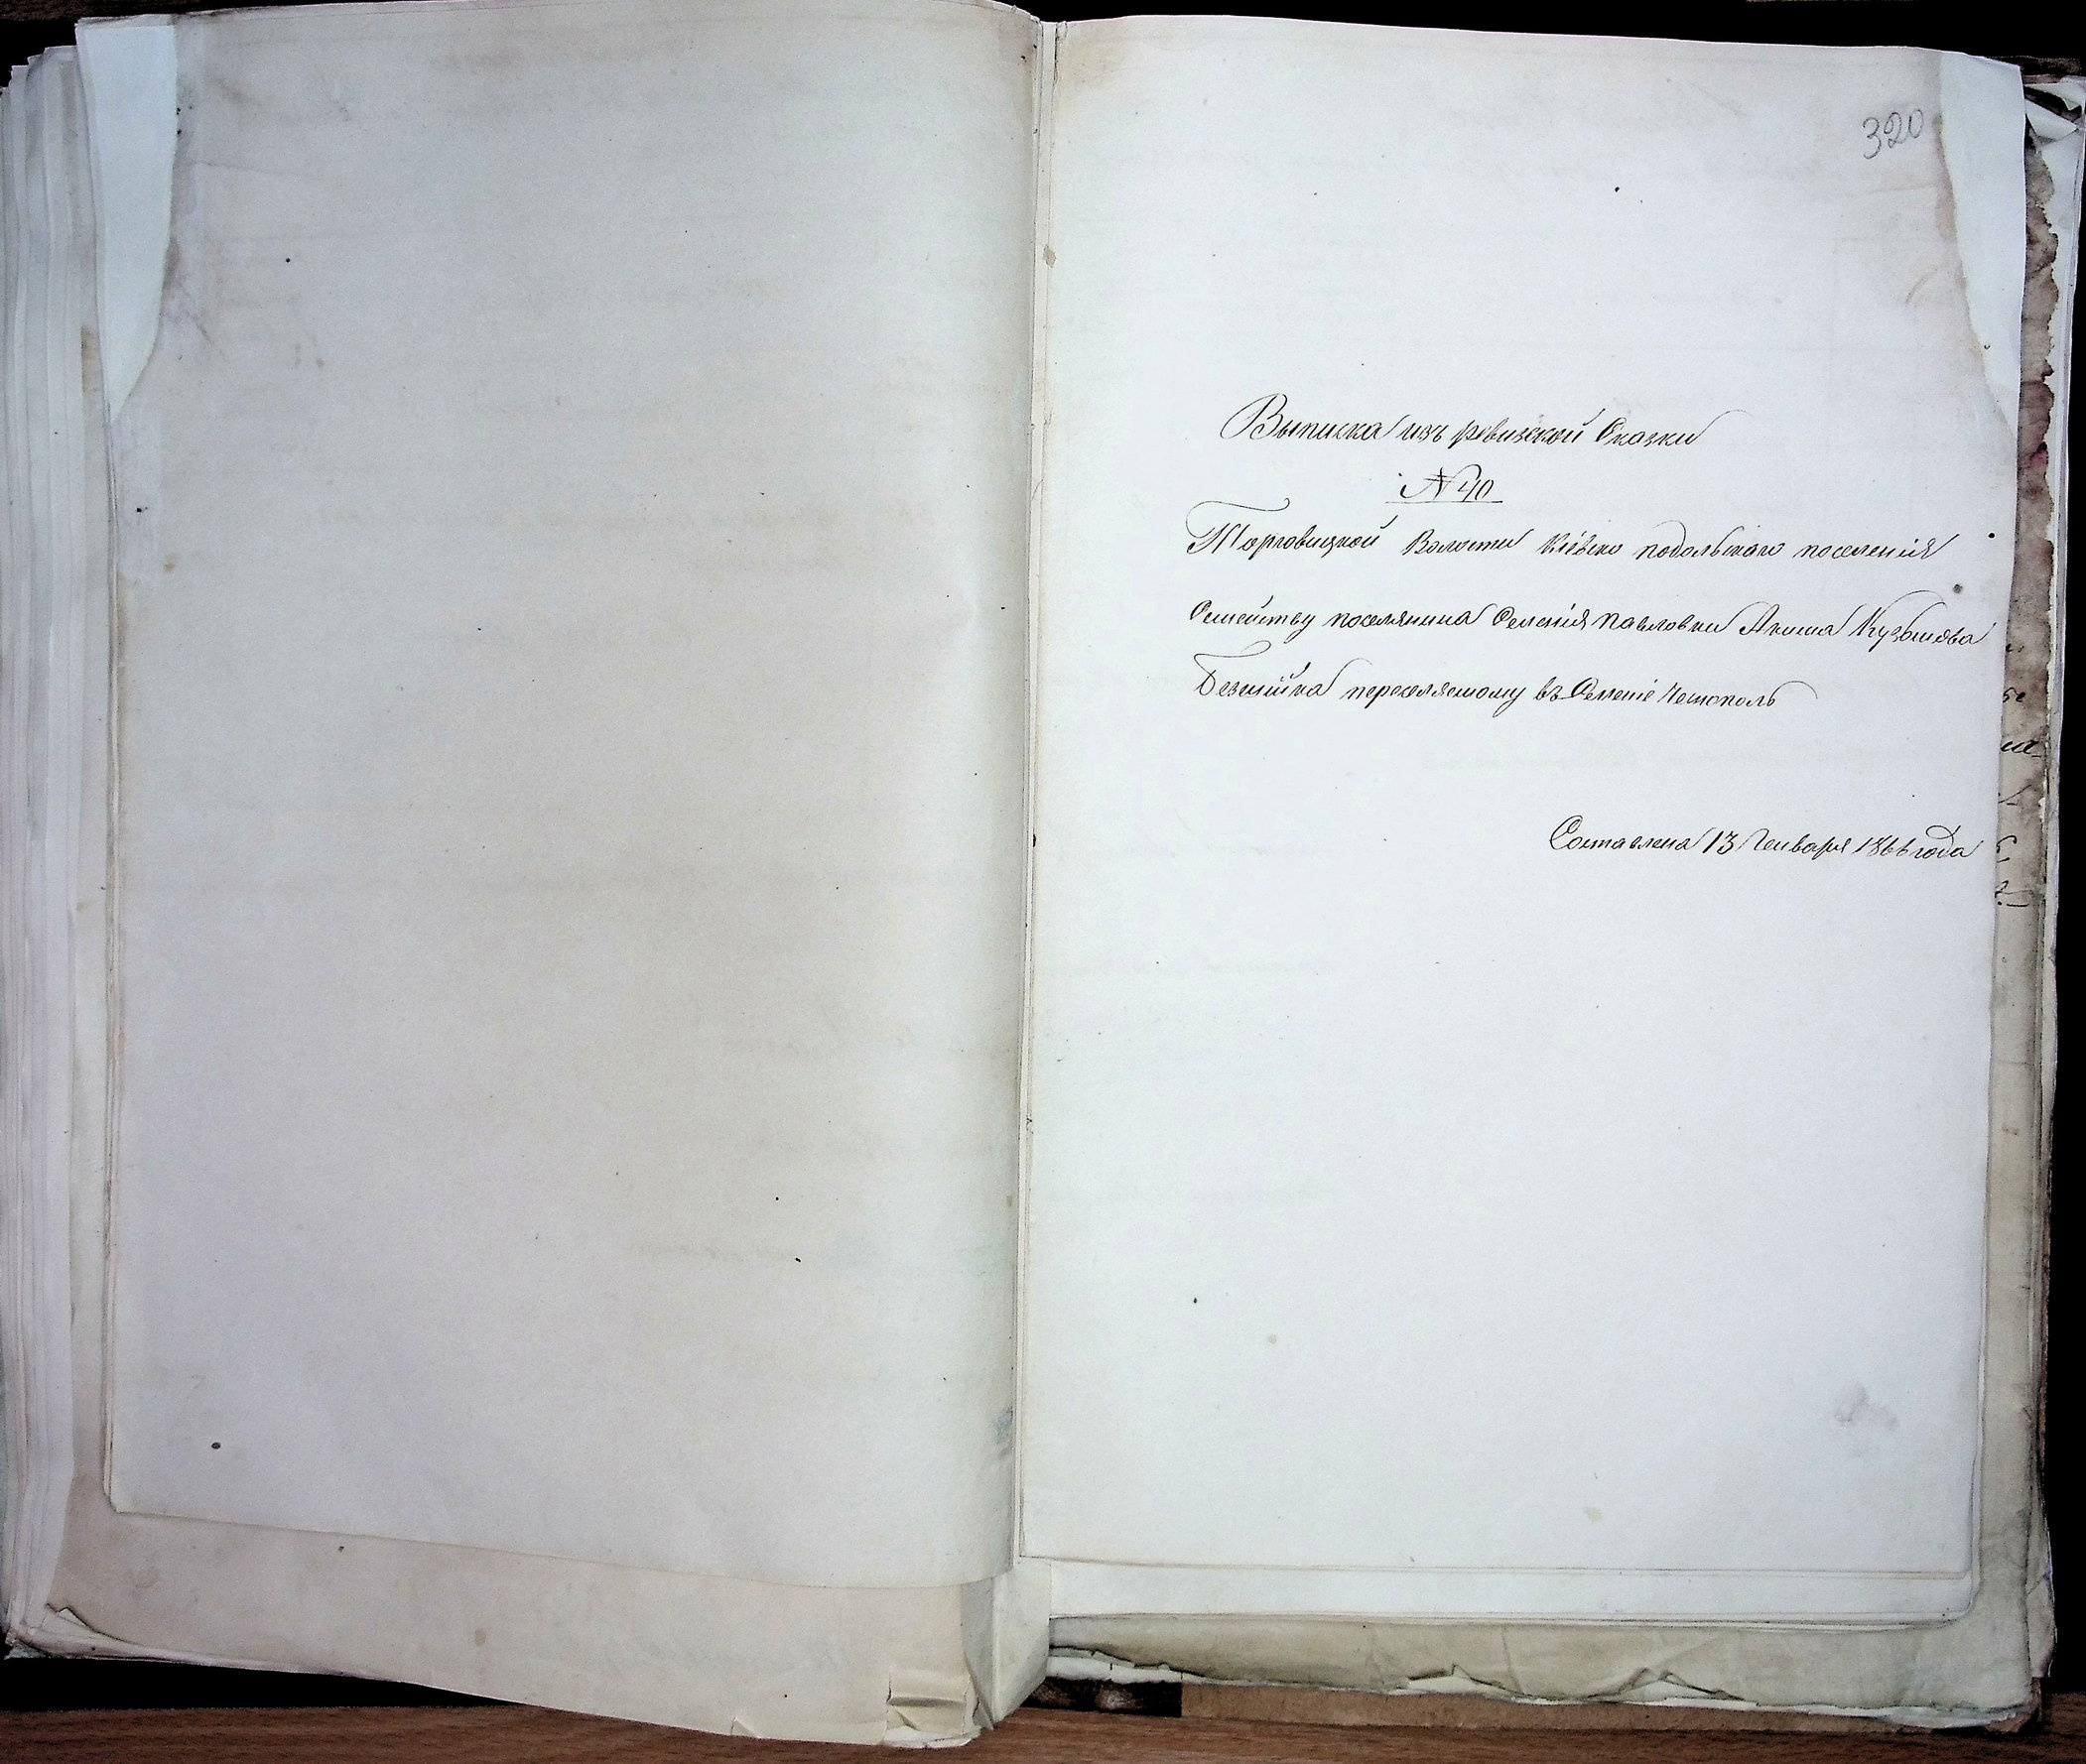 320
Выписка изъ ревизской Сказки
№ 40
Торговицкой Волости Кіевско подольскаго поселенія
Семейству поселянина Селенія Павловки Акима Кузьмова
переселяемому въ Селеніе
Составлена 13 Генваря 1866 года